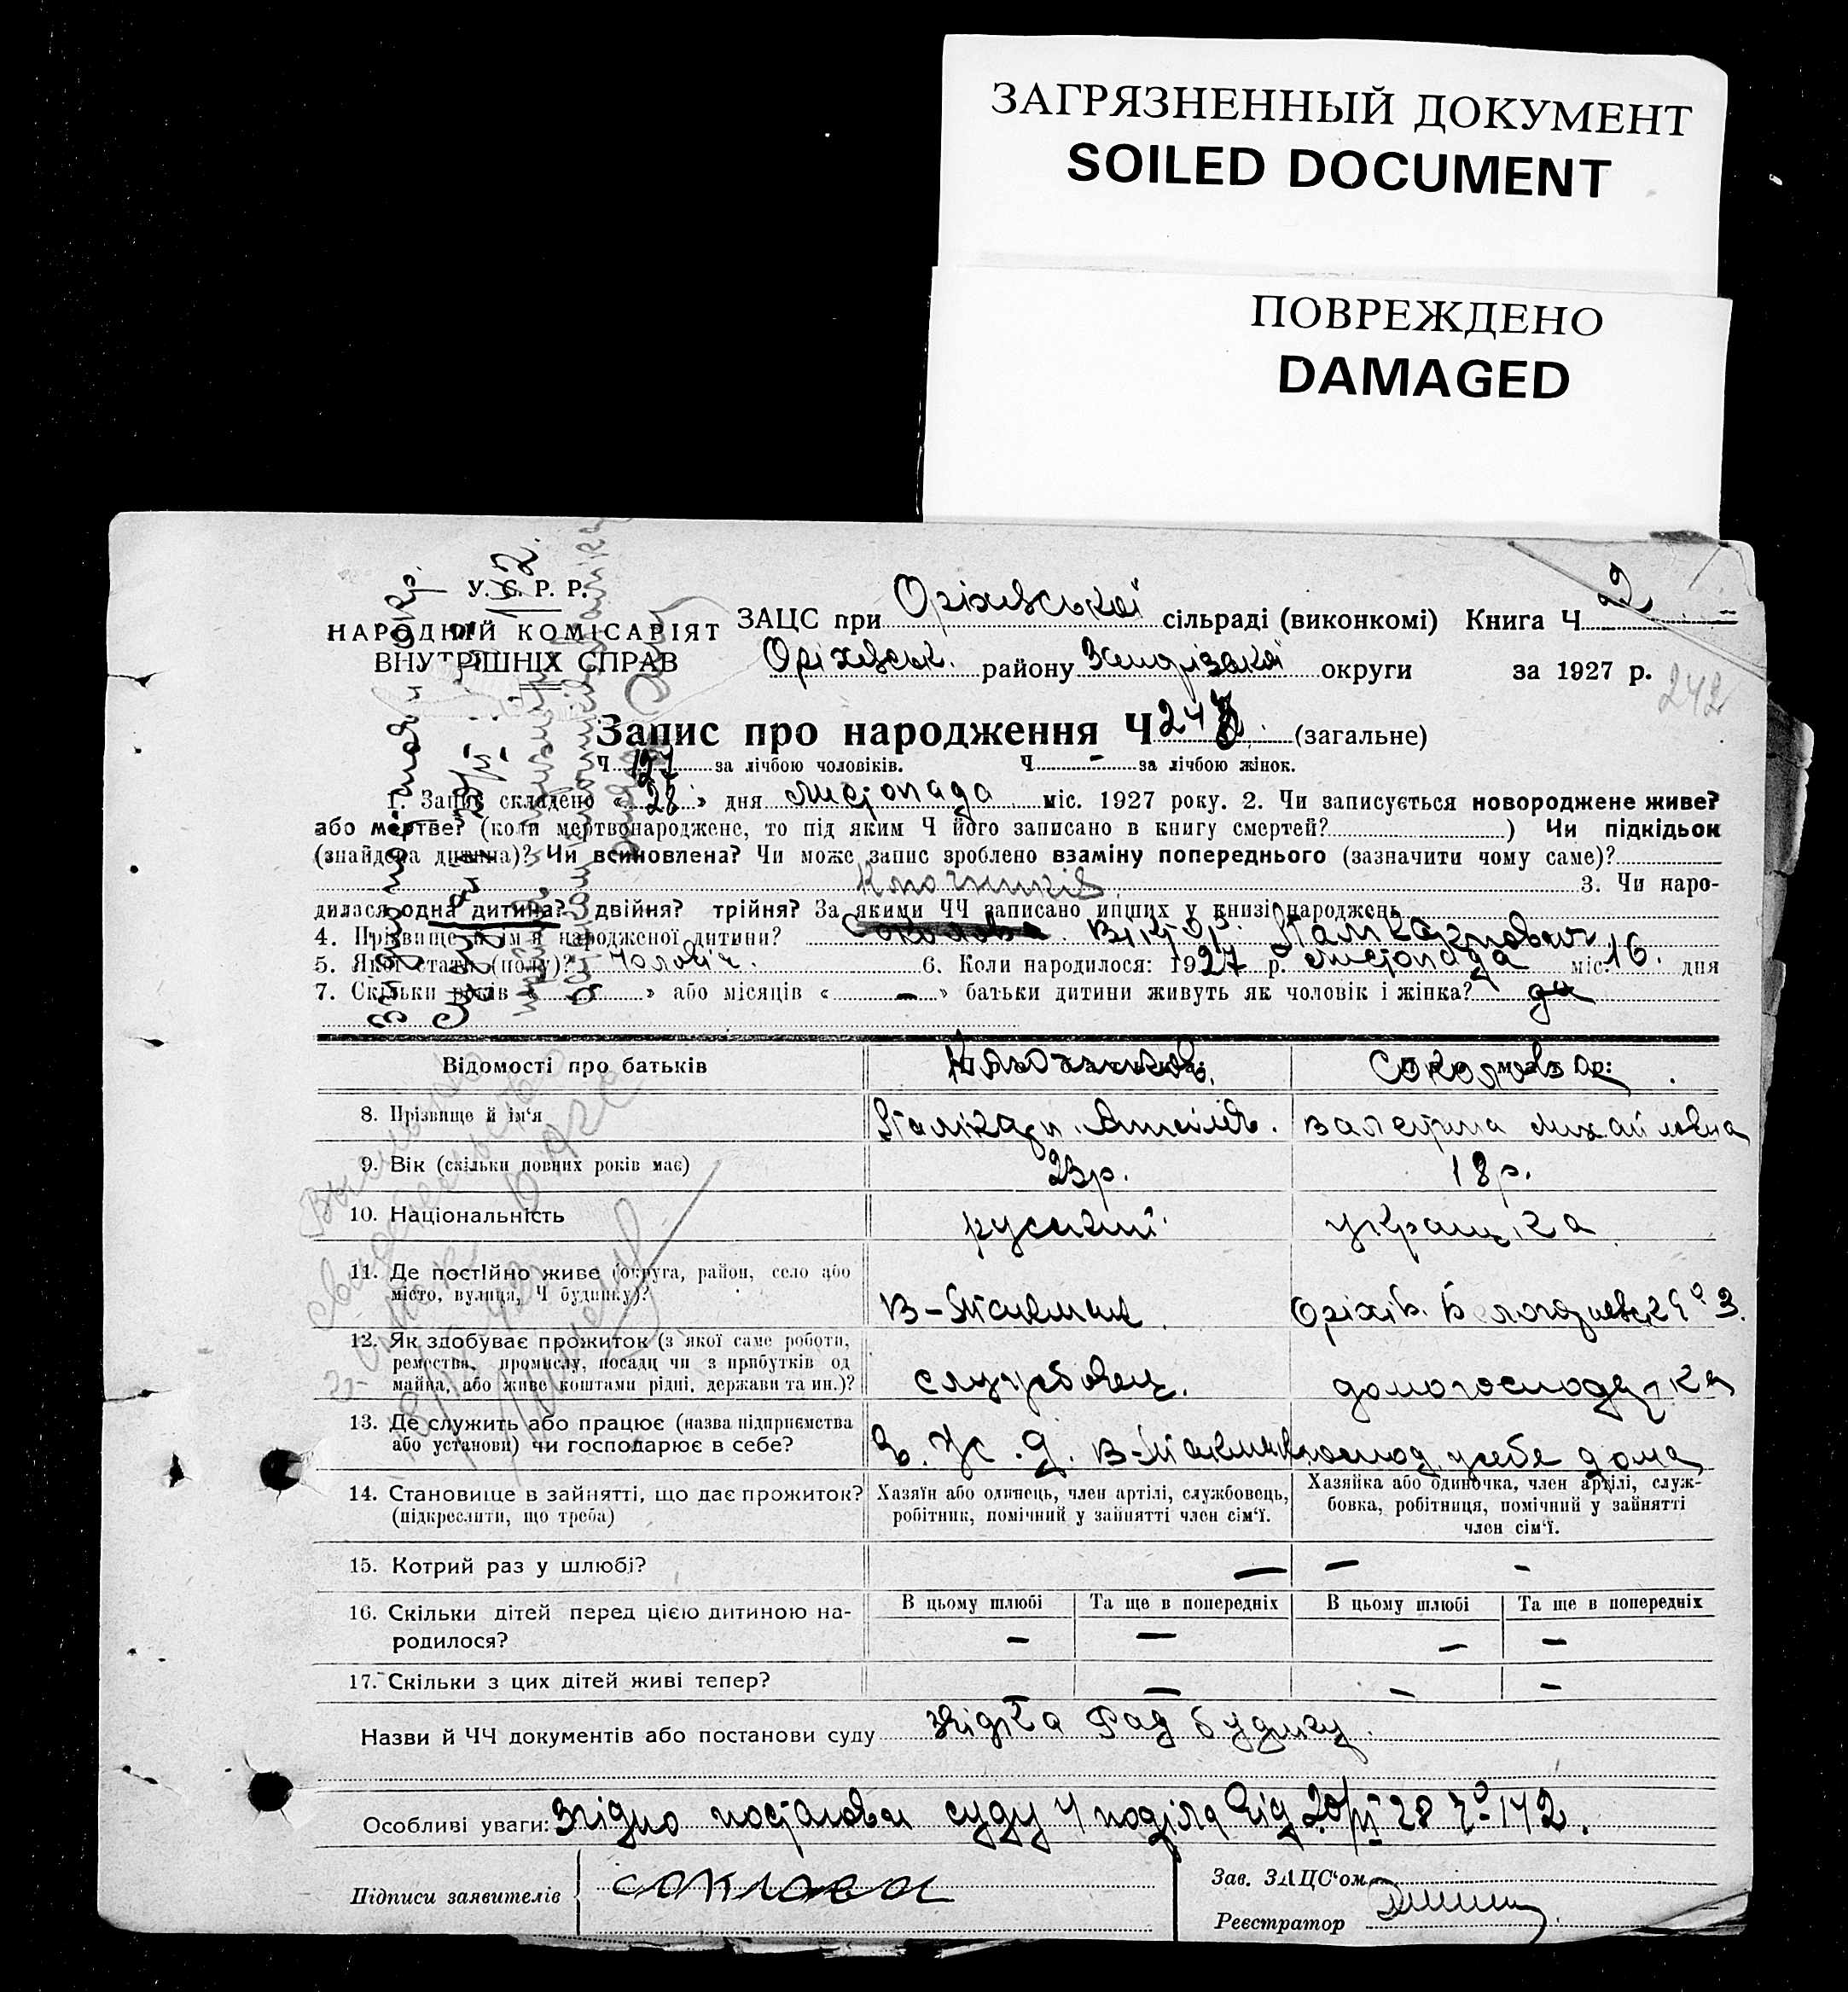 ЗАГРЯЗНЕННЫЙ ДОКУМЕНТ
SOILED DOCUMENT
ПОВРЕЖДЕНО
DAMAGED
У. С. Р. Р.
НАРОДНІЙ КОМІСАРІЯТ
ВНУТРІШНІХ СПРАВ
ЗАЦС при Оріхевської сільраді (виконкомі) Книга Ч 2
Оріхевськ. району округи за 1927 р.
242
Запис про народження Ч 247 (загальне)
Ч 127 за лічбою чоловіків. Ч - за лічбою жінок.
1. Запис складено « 28 » дня листопада міс. 1927 року. 2. Чи записується новороджене живе?
або мертве? (коли мертвонароджене, то під яким Ч його записано в книгу смертей? ) Чи підкідьок
(знайдена дитина)? Чи всиновлена? Чи може запис зроблено взаміну попереднього (зазначити чому саме)?
Ключників 3. Чи наро-
дилася одна дитина? двійня? трійня? За якими ЧЧ записано инших у книзі народжень
4. Прізвище й ім'я народженої дитини? Соколова Віктор
5. Якої стати (полу)? Чоловіч. 6. Коли народилося: 1927 р. листопада міс. 16. дня
7. Скільки років « - » або місяців « - » батьки дитини живуть як чоловік і жінка? да
Відомості про батьків
Соколова
8. Прізвище й ім'я Валентина Михайловна
9. Вік (скільки повних років має) 23 р. 18 р.
10. Національність руський українка
11. Де постійно живе (округа, район, село або
місто, вулиця, Ч будинку)? В-Токмак Оріхів. 3.
12. Як здобуває прожиток (з якої саме роботи,
ремества, промислу, посади чи з прибутків од
майна, або живе коштами рідні, держави та ин.)? службовец. домогосподарка
13. Де служить або працює (назва підприємства
або установи) чи господарює в себе? З. Ж. Д. В-Токмак господ. у себе дома
14. Становище в зайнятті, що дає прожиток?
(підкреслити, що треба)
Хазяїн або одинець, член артілі, службовець,
робітник, помічний у зайнятті член сім'ї.
Хазяйка або одиночка, член артілі, служ-
бовка, робітниця, помічний у зайнятті
член сім'ї.
15. Котрий раз у шлюбі? — — -
16. Скільки дітей перед цією дитиною на-
родилося?
В цьому шлюбі Та ще в попередніх В цьому шлюбі Та ще в попередніх
— — — —
17. Скільки з цих дітей живі тепер? — — — —
Назви й ЧЧ документів або постанови суду звідка Рад будинку
Особливі уваги: Згідно постанови суду 4 поділа від 20/VI 28 № 142.
Підписи заявителів Соколова
Зав. ЗАЦС'ом
Реєстратор